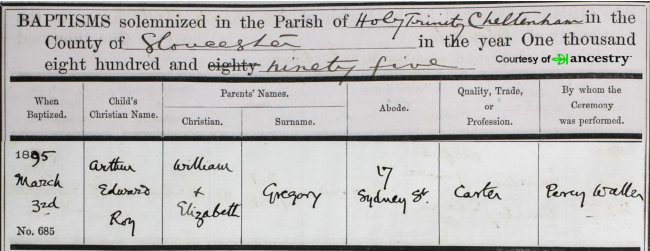 BAPTISMS solemnized in the Parish of Holy Trinity Cheltenham in the
County of Gloucester in the year One thousand
eight hundred and eighty ninety five
Courtesy of ancestry
When Baptized.
Child's Christian Name.
Parents' Names.
Christian.
Surname.
Abode.
Quality, Trade, or Profession.
By whom the Ceremony was performed.
1895
March
3rd
No. 685
Arthur
Edward
Roy
William
+
Elizabeth
Gregory
17
Sydney St.
Carter
Percy Waller